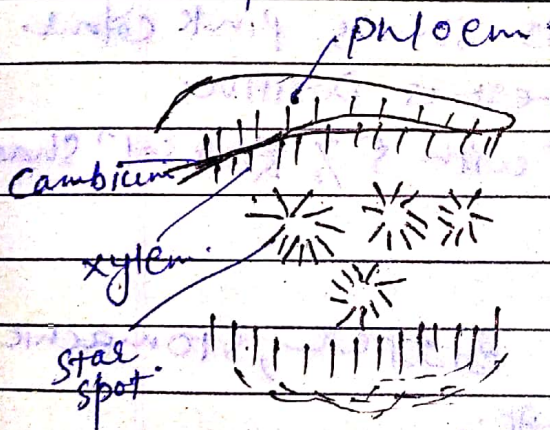 phloem
Cambium
xylem.
Star
spot.